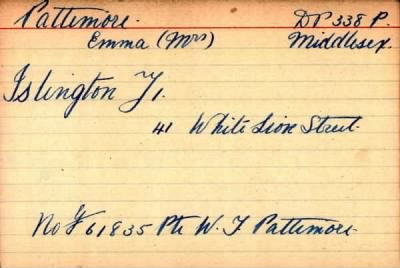 Pattimore. DP 338 P.
Emma (Mrs) Middlesex.
Islington N1.
41 White Lion Street.
No G/61835 Pte W. J. Pattimore.